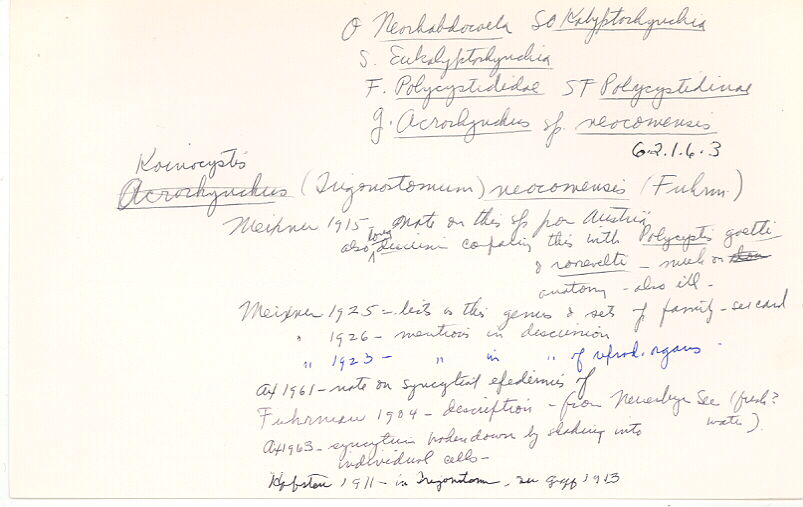 O Neorhabdocoela SO Kalyptorhynchia
S. Eukalyptorhynchia
F. Polycystididae SF Polycystidinae
g. Acrorhynchus sp. neocomensis
6.2.1.6.3
Koinocystis
Acrorhynchus (Trigonostomum) neocomensis (Fuhrm)
Meixner 1915, note on this sp from Austria
also long discussion comparing this with Polycystis goettei
& roosevelti - much on
anatomy - also ill -
Meixner 1925 - lists in this genus & sets of family - see card
" 1926 - mentions in discussion
" 1923 - " in " of reprod. organs -
Ax 1961 - note on syncytial epidermis of
Fuhrmann 1904 - description - from Neuenburger See (fresh? water).
Ax 1963 - syncytium broken down by shaking into
individual cells -
Hofsten 1911 - in Trigonostom, see Graff 1913